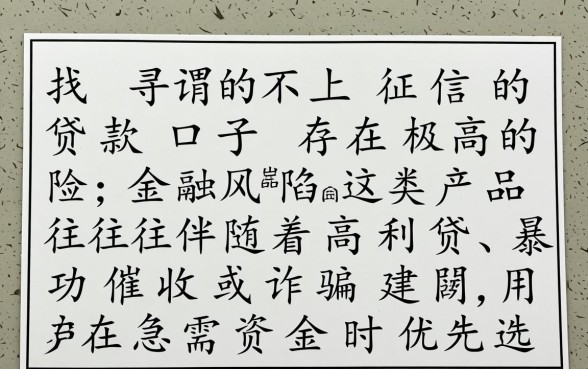 找 寻谓的不上 征信的
贷款 口子 存在极高的
险；金融风陷这类产品
往往往伴随着高利贷、暴
功催收或诈骗 建闼，用
在急需资金时优先选